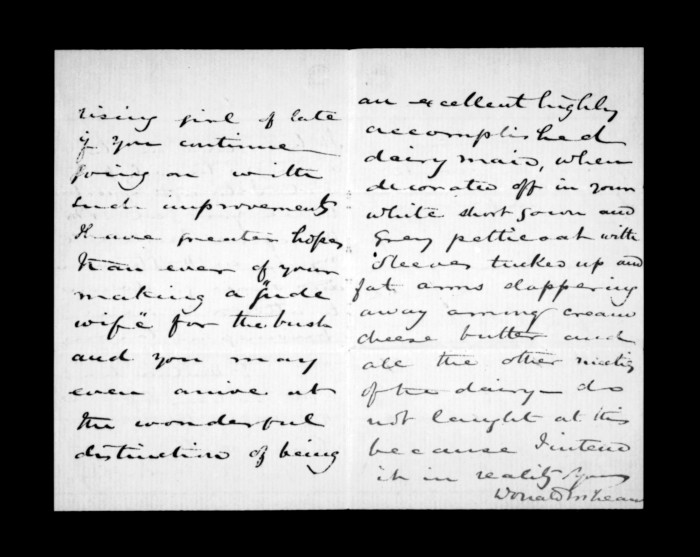 rising girl of late
if you continue
going on with
such improvements
I have greater hopes
than ever of your
making a "gude
wife" for the bush
and you may
even arrive at
the wonderful
distinction of being
an excellent highly
accomplished
dairy maid, when
decorated off in your
white short gown and
grey petticoat with
sleeves tucked up and
fat arms slappering
away among cream
cheese butter and
all the other
of the dairy - do
not laught at this
because I intend
it in reality Yours
Donald McLean